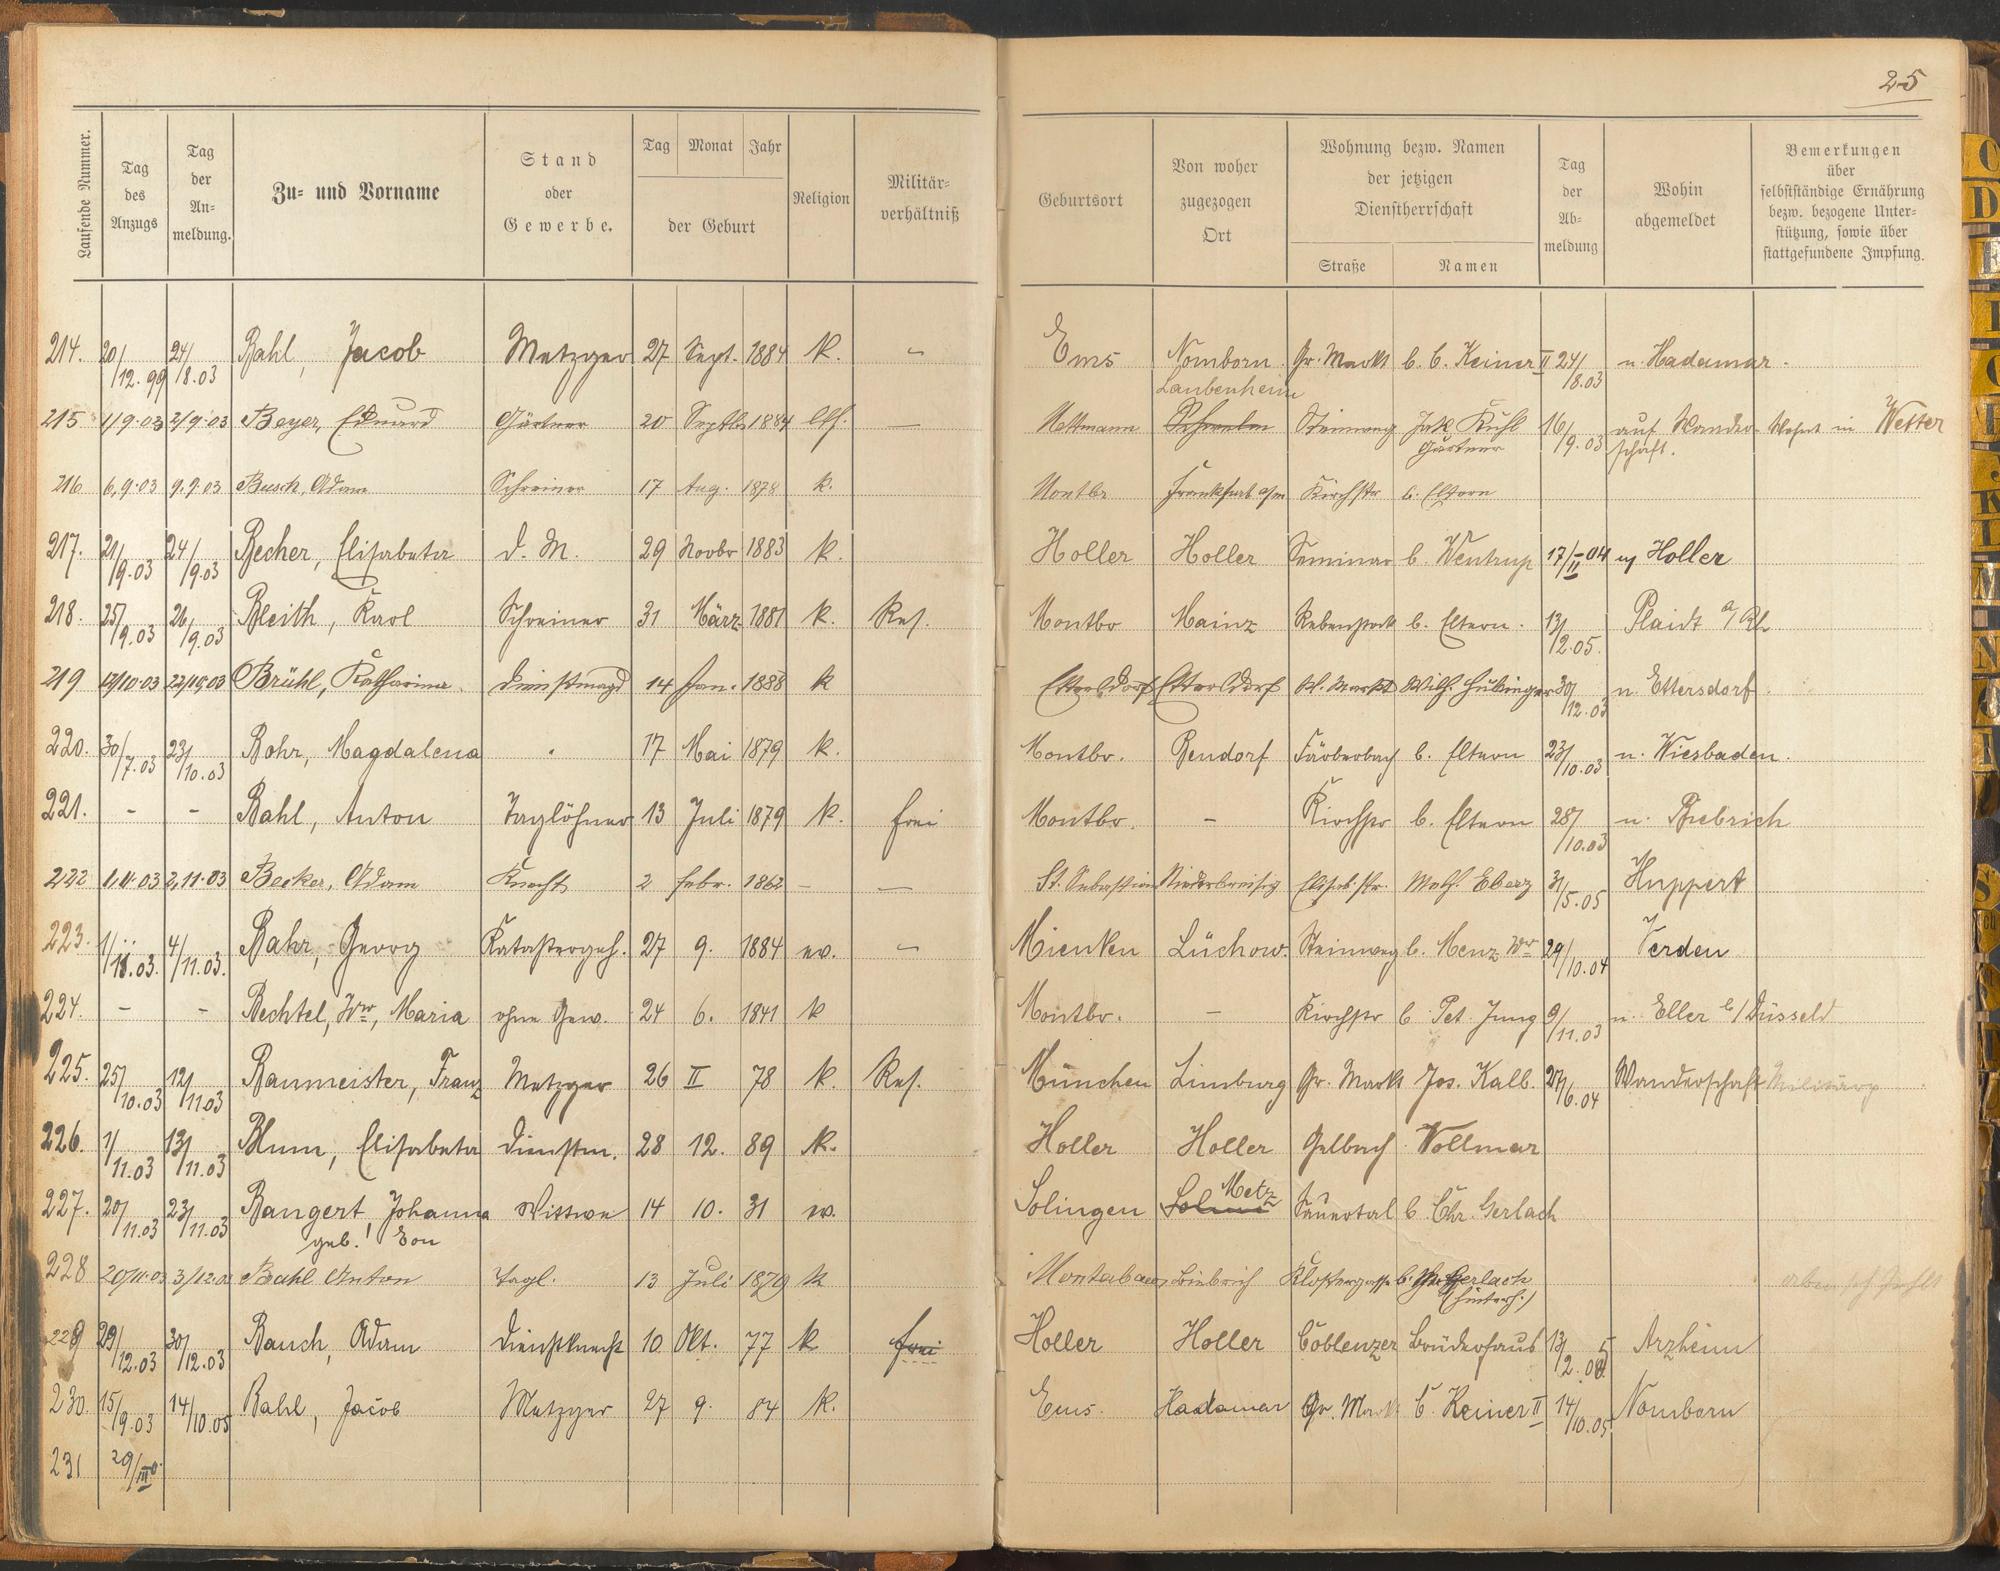 25
Laufende Nummer.
Tag des Anzugs
Tag der An- meldung.
Zu- und Vorname
Stand oder Gewerbe.
Tag Monat Jahr
der Geburt
Religion
Militär- verhältniß
Geburtsort
Von woher zugezogen Ort
Wohnung bezw. Namen der jetzigen Dienstherrschaft
Straße Namen
Tag der Ab- meldung
Wohin abgemeldet
Bemerkungen über selbstständige Ernährung bezw. bezogene Unter- stützung, sowie über stattgefundene Impfung.
214. 20/12.99 24/8.03 Bahl, Jacob Metzger 27 Sept. 1884 k. – Ems Nomborn Gr. Markt b. C. Keiner II 24/8.03 n. Hadamar.
Laubenheim
215 1/9.03 2/9.03 Beyer, Eduard Gärtner 20 Septbr 1884 – Mettmann Steinweg Jak. Kühl 16/9.03 auf Wander- Wohnt in Wetter
Gärtner schaft.
216 6.9.03 9.9.03 Busch, Adam Schreiner 17 Aug. 1878 k. Montbr Frankfurt a/m Kirchstr b. Eltern
217. 21/9.03 24/9.03 Becher, Elisabeta D. M. 29 Novbr 1883 k. Holler Holler Seminar b. Wentrup 17/II-04 n Holler
218. 25/9.03 26/9.03 Bleith, Karl Schreiner 31 März 1881 k. Res. Montbr Mainz Rebenstock b. Eltern. 13/12.05. Plaidt a/Rh
219 22/10.03 Brühl, Katharina. Dienstmagd 14 Jan. 1888 k Ettersdorf Ettersdorf Kl. Markt Wilh. Hübinger 30/12.03 n. Ettersdorf
220. 30/7.03 23/10.03 Bohr, Magdalena 17 Mai 1879 k. Montbr. Bendorf Färberbach b. Eltern 23/10.03 n. Wiesbaden.
221. – – Bahl, Anton Taglöhner 13 Juli 1879 k. frei Montbr. – Kirchstr b. Eltern 28/10.03 n. Biebrich
222 1.11.03 2.11.03 Becker, Adam Knecht 2 Febr. 1862 – – St. Sebastian Niederbreisig Elisab. str. Math. Eberz 31/5.05 Huppert
223. 1/11.03. 4/11.03. Bahr, Georg Katastergeh. 27 9. 1884 ev. – Mienken Lüchow. Steinweg b. Menz Wr 29/10.04 Verden
224. – – Bechtel, Wwe, Maria ohne Gew. 24 6. 1841 k Montbr. – Kirchstr b Pet. Jung 9/11.03 n. Eller b/Düsseld
225. 25/10.03 12/11.03 Baumeister, Franz Metzger 26 II 78 k. Res. München Limburg Gr. Markt Jos. Kalb. 27/6.04 Wanderschaft
226. 1/11.03 13/11.03 Blum, Elisabeta Dienstm. 28 12. 89 k. Holler Holler Gelbach Vollmar
227. 20/11.03 23/11.03 Bangert, Johanna Wittwe 14 10. 31 ev. Solingen Metz Sauertal b. Chr. Gerlach
geb.
228 20/11.03 Bahl Anton Tagl. 13 Juli 1879 k Montabaur Biebrich Klostergasse b. Gerlach
(hinterh.)
229 29/12.03 30/12.03 Bauch, Adam Dienstknecht 10 Okt. 77 k frei Holler Holler Coblenzer Brüderhaus 13/2.05 Arzheim
230. 15/9.03 14/10.05 Bahl, Jacob Metzger 27 9. 84 k. Ems. Hadamar Gr. Markt C. Keiner II 14/10.05 Nomborn
231 29/III